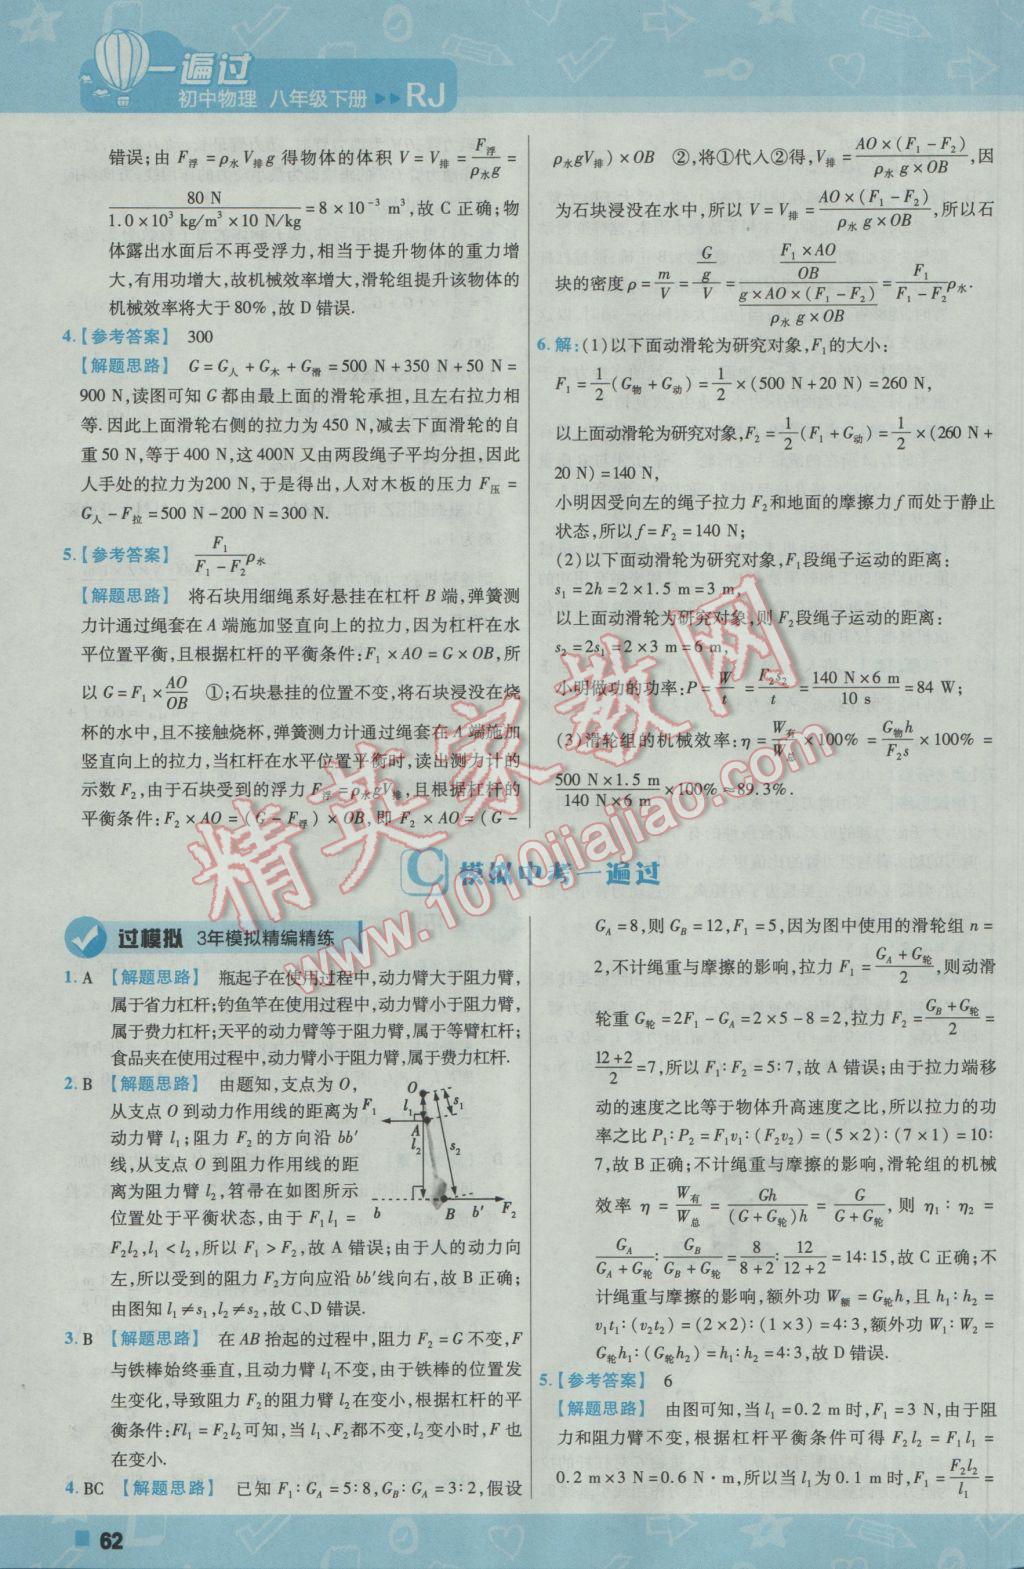 一遍过
初中物理 八年级下册 ▶▶ RJ
错误;由 F浮=ρ水V排g 得物体的体积 V=V排=F浮/(ρ水g)=
80 N/(1.0×10³ kg/m³×10 N/kg)=8×10⁻³ m³,故 C 正确;物
体露出水面后不再受浮力,相当于提升物体的重力增
大,有用功增大,故机械效率增大,滑轮组提升该物体的
机械效率将大于80%,故 D 错误.
4.【参考答案】 300
【解题思路】 G=G人+G木+G滑=500 N+350 N+50 N=
900 N,读图可知 G 都由最上面的滑轮承担,且左右拉力相
等.因此上面滑轮右侧的拉力为 450 N,减去下面滑轮的自
重 50 N,等于 400 N,这 400N 又由两段绳子平均分担,因此
人手处的拉力为200 N,于是得出,人对木板的压力 F压=
G人-F拉=500 N-200 N=300 N.
5.【参考答案】 F₁/(F₁-F₂)ρ水
【解题思路】 将石块用细绳系好悬挂在杠杆 B 端,弹簧测
力计通过绳套在 A 端施加竖直向上的拉力,因为杠杆在水
平位置平衡,且根据杠杆的平衡条件:F₁×AO=G×OB,所
以 G=F₁×AO/OB ①;石块悬挂的位置不变,将石块浸没在烧
杯的水中,且不接触烧杯,弹簧测力计通过绳套在 A 端施加
竖直向上的拉力,当杠杆在水平位置平衡时,读出测力计的
示数 F₂,由于石块受到的浮力 F浮=ρ水gV排,且根据杠杆的
平衡条件:F₂×AO=(G-F浮)×OB,即 F₂×AO=(G-
ρ水gV排)×OB ②,将①代入②得,V排=AO×(F₁-F₂)/(ρ水g×OB),因
为石块浸没在水中,所以 V=V排=AO×(F₁-F₂)/(ρ水g×OB),所以石
块的密度 ρ=m/V=(G/g)/V=(F₁×AO/OB)/(g×AO×(F₁-F₂)/(ρ水g×OB))=F₁/(F₁-F₂)ρ水.
6.解:(1)以下面动滑轮为研究对象,F₁的大小:
F₁=1/2(G物+G动)=1/2×(500 N+20 N)=260 N,
以上面动滑轮为研究对象,F₂=1/2(F₁+G动)=1/2×(260 N+
20 N)=140 N,
小明因受向左的绳子拉力 F₂和地面的摩擦力 f 而处于静止
状态,所以 f=F₂=140 N;
(2)以下面动滑轮为研究对象,F₁段绳子运动的距离:
s₁=2h=2×1.5 m=3 m,
以上面动滑轮为研究对象,则 F₂段绳子运动的距离:
s₂=2s₁=2×3 m=6 m,
小明做功的功率:P=W/t=F₂s₂/t=140 N×6 m/10 s=84 W;
(3)滑轮组的机械效率:η=W有/W总×100%=G物h/F₂s×100%=
500 N×1.5 m/140 N×6 m×100%≈89.3%.
C 模拟中考一遍过
过模拟 3年模拟精编精练
1. A 【解题思路】 瓶起子在使用过程中,动力臂大于阻力臂,
属于省力杠杆;钓鱼竿在使用过程中,动力臂小于阻力臂,
属于费力杠杆;天平的动力臂等于阻力臂,属于等臂杠杆;
食品夹在使用过程中,动力臂小于阻力臂,属于费力杠杆.
2. B 【解题思路】 由题知,支点为 O,
从支点 O 到动力作用线的距离为
动力臂 l₁;阻力 F₂的方向沿 bb′
线,从支点 O 到阻力作用线的距
离为阻力臂 l₂,笤帚在如图所示
位置处于平衡状态,由于 F₁l₁=
F₂l₂,l₁<l₂,所以 F₁>F₂,故 A 错误;由于人的动力向
左,所以受到的阻力 F₂方向应沿 bb′线向右,故 B 正确;
由图知 l₁≠s₁,l₂≠s₂,故 C、D 错误.
O
F₁ l₁ s₁
A
l₂ s₂
b B b′ F₂
3. B 【解题思路】 在 AB 抬起的过程中,阻力 F₂=G 不变,F
与铁棒始终垂直,且动力臂 l₁不变,由于铁棒的位置发
生变化,导致阻力 F₂的阻力臂 l₂在变小,根据杠杆的平
衡条件:Fl₁=F₂l₂可知,当 l₁、F₂都不变,l₂变小时,F 也
在变小.
4. BC 【解题思路】 已知 F₁∶G_A=5∶8,G_B∶G_A=3∶2,假设
G_A=8,则 G_B=12,F₁=5,因为图中使用的滑轮组 n=
2,不计绳重与摩擦的影响,拉力 F₁=(G_A+G轮)/2,则动滑
轮重 G轮=2F₁-G_A=2×5-8=2,拉力 F₂=(G_B+G轮)/2=
(12+2)/2=7,所以 F₁∶F₂=5∶7,故 A 错误;由于拉力端移
动的速度之比等于物体升高速度之比,所以拉力的功
率之比 P₁∶P₂=F₁v₁∶(F₂v₂)=(5×2)∶(7×1)=10∶
7,故 B 正确;不计绳重与摩擦的影响,滑轮组的机械
效率 η=W有/W总=Gh/((G+G轮)h)=G/(G+G轮),则 η₁∶η₂=
G_A/(G_A+G轮)∶G_B/(G_B+G轮)=8/(8+2)∶12/(12+2)=14∶15,故 C 正确;不
计绳重与摩擦的影响,额外功 W额=G轮h,且 h₁∶h₂=
v₁t₁∶(v₂t₂)=(2×2)∶(1×3)=4∶3,额外功 W₁∶W₂=
G轮h₁∶(G轮h₂)=h₁∶h₂=4∶3,故 D 错误.
5.【参考答案】 6
【解题思路】 由图可知,当 l₁=0.2 m 时,F₁=3 N,由于阻
力和阻力臂不变,根据杠杆平衡条件可得 F₂l₂=F₁l₁=
0.2 m×3 N=0.6 N·m,所以当 l₁为 0.1 m 时,F₁=F₂l₂/l₁=
62
精英家教网
www.1010jiajiao.com